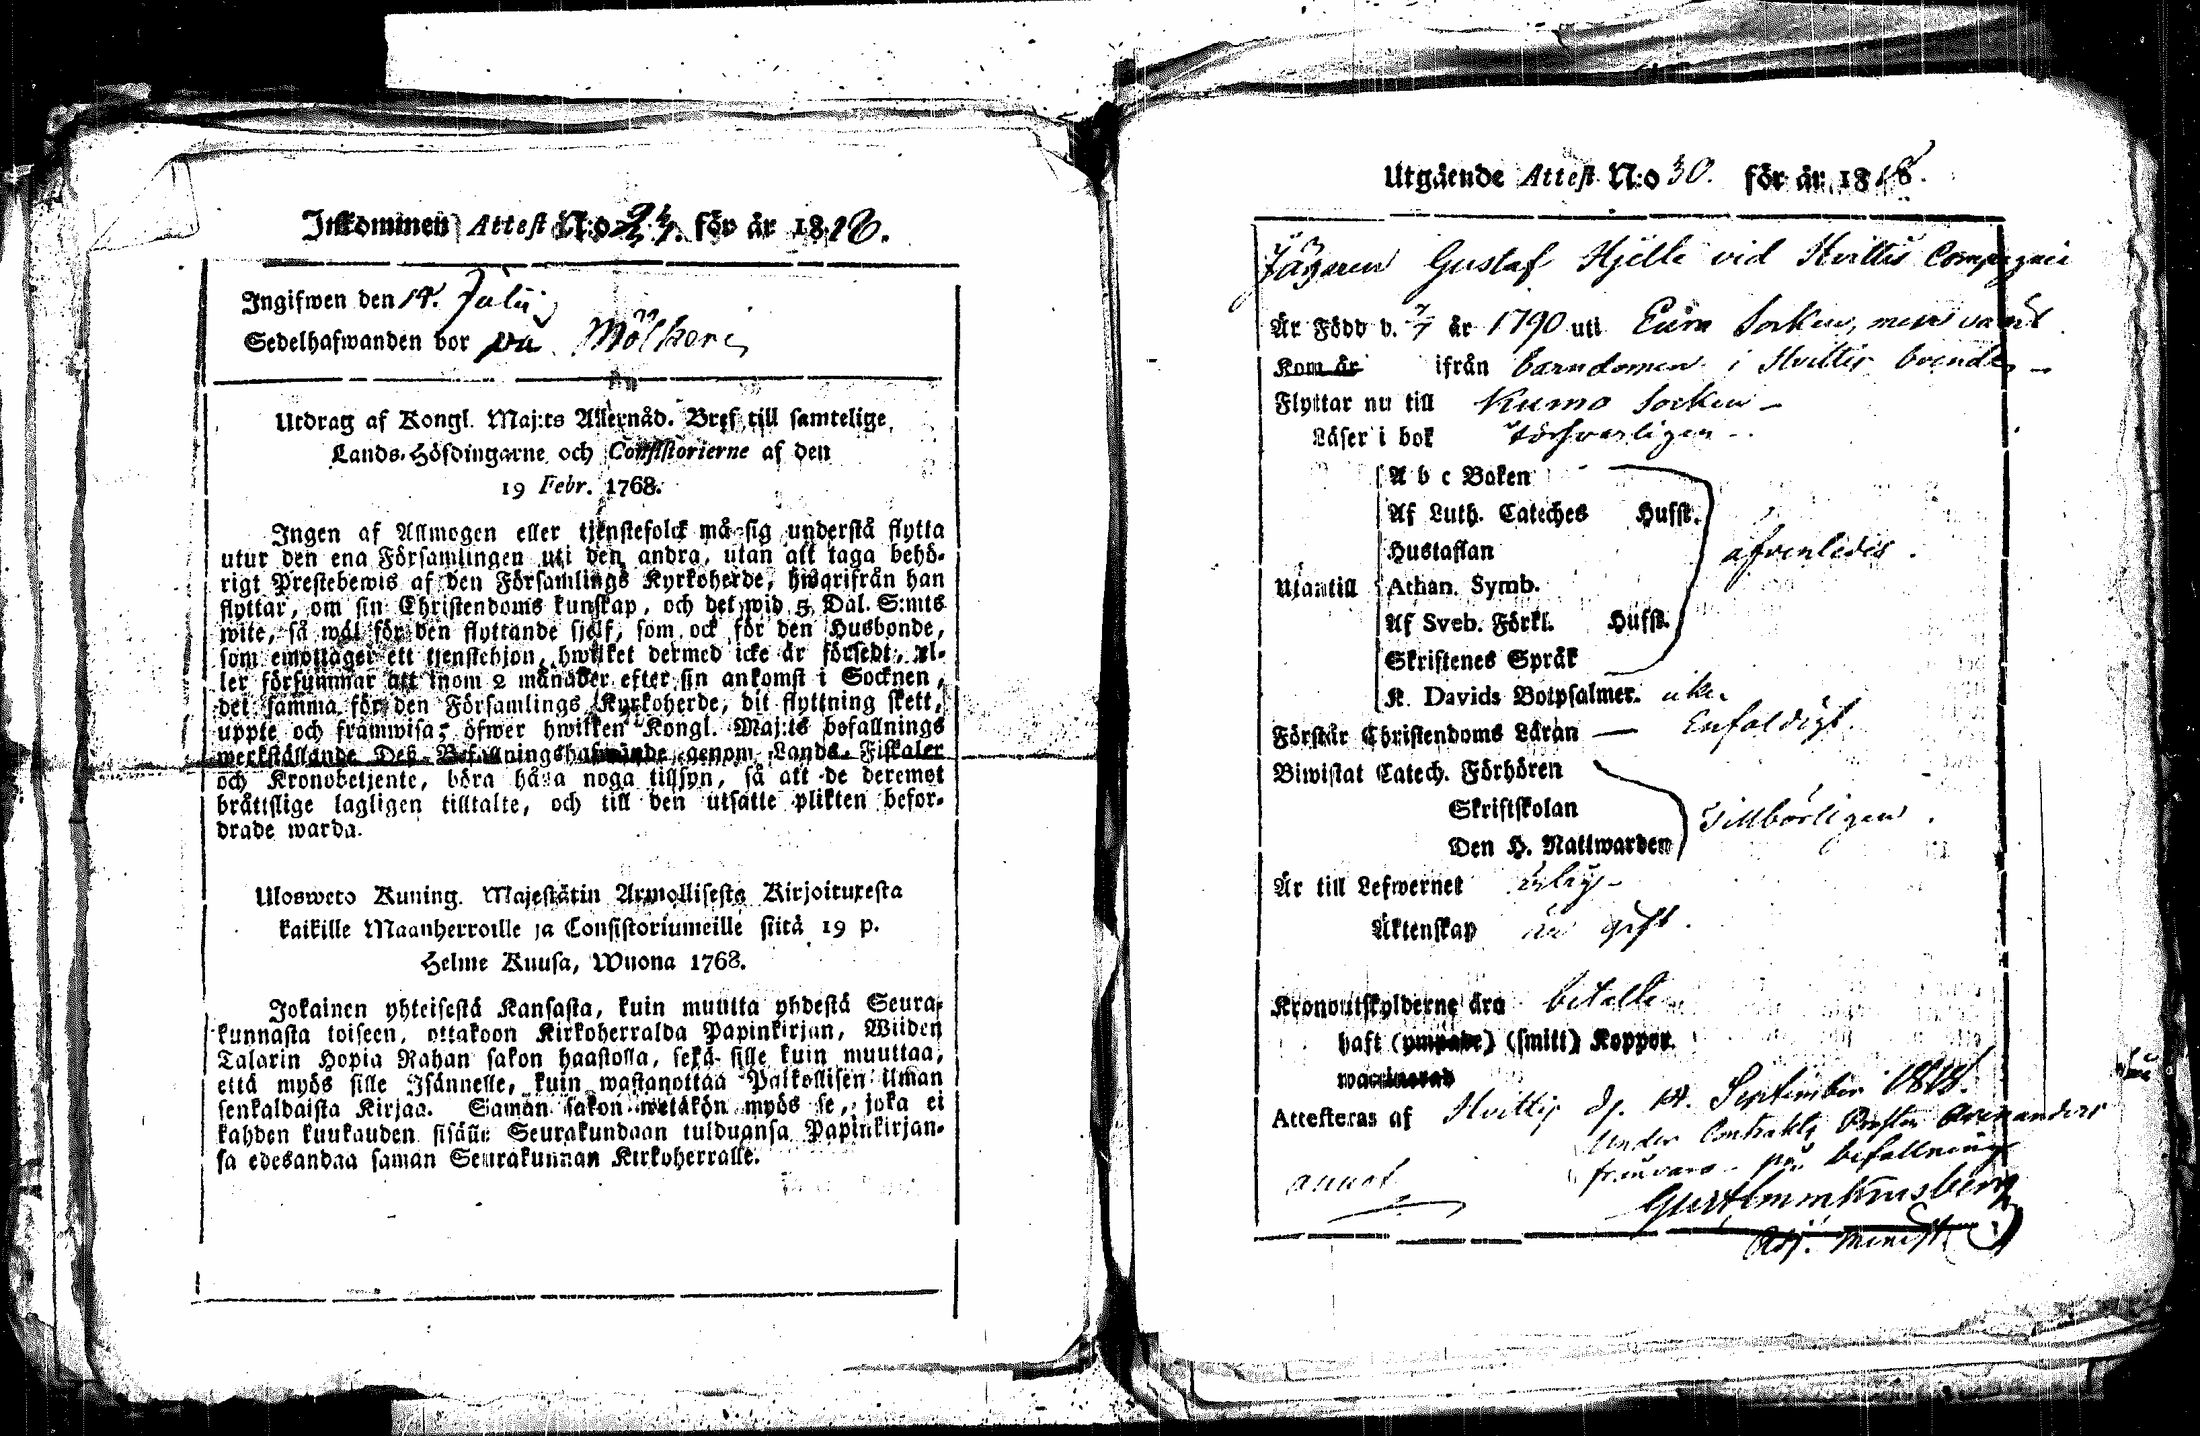 Inkommen Attest N:o 24. för år 1818.
Ingifwen den 14. Julii
Sedelhafwanden bor på Mölkeri
Utdrag af Kongl. Maj:ts Allernåd. Bref till samtelige
Lands-Höfdingarne och Consistorierne af den
19 Febr. 1768.
Ingen af Allmogen eller tjenstefolck må sig understå flytta
utur den ena Församlingen uti den andra, utan att taga behö-
rigt Prestebewis af den Församlings Kyrkoherde, hwarifrån han
flyttar, om sin Christendoms kunskap, och det wid 5 Dal. S:mts
wite, så wäl för den flyttande sjelf, som ock för den Husbonde,
som emottager ett tjenstehjon, hwilket dermed icke är försedt, el-
ler försummar att inom 2 månader efter sin ankomst i Socknen,
det samma för den Församlings Kyrkoherde, dit flyttning skett,
uppte och framwisa; öfwer hwilken Kongl. Maj:ts befallnings
werkställande Deß Befallningshafwande genom Lands-Fiskaler
och Kronobetjente, böra hafwa noga tillsyn, så att de deremot
bråttslige lagligen tilltalte, och till den utsatte plikten befor-
drade warda.
Ulosweto Kuning. Majestätin Armollisesta Kirjoituxesta
kaikille Maanherroille ja Consistoriumeille siitä 19 p.
Helme Kuusa, Wuona 1768.
Jokainen yhteisestä Kansasta, kuin muutta yhdestä Seura-
kunnasta toiseen, ottakoon Kirkoherralda Papinkirjan, Wiiden
Talarin Hopia Rahan sakon haastolla, sekä sille kuin muuttaa,
että myös sille Isännelle, kuin wastanottaa Palkollisen ilman
senkaldaista Kirjaa. Saman sakon wetäkön myös se, joka ei
kahden kuukauden sisäne Seurakundaan tulduansa Papinkirjan-
sa edesandaa saman Seurakunnan Kirkoherralle.
Utgående Attest N:o 30. för år 1818.
Jägaren Gustaf Hjelle vid Hvittis Compagnie
Är Född d. 7/7 år 1790 uti Eura Socken, men varit
Kom år ifrån barndomen i Hvittis boende
Flyttar nu till Kumo Socken
Läser i bok försvarligen
A b c Boken
Af Luth. Cateches Hufst.
Hustaflan
Utantill Athan. Symb. äfvenledes.
Af Sveb. Förkl. Hufst.
Skriftenes Språk
K. Davids Botpsalmer. icke
Förstår Christendoms Läran — Enfaldigt.
Biwistat Catech. Förhören
Skriftskolan Tillbörligen.
Den H. Nattwarden
Är till Lefwernet ärlig
Äktenskap är gift.
Kronoutskylderne äro betalte
haft (ympade) (smitt) Koppor.
waccinerad
Attesteras af Hvittis d. 14. September 1818.
under Contrakts Prosten Avenanders
frånvaro på befallning
annot
Adj. Minist.